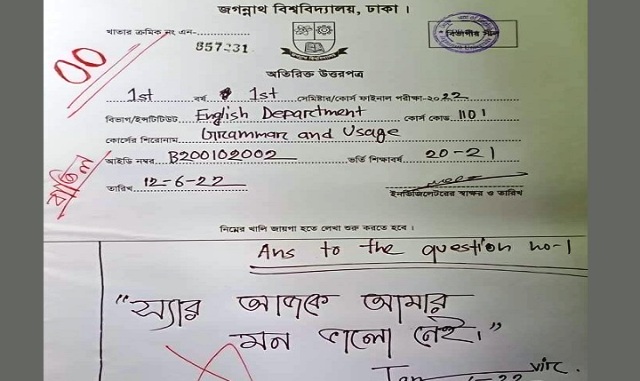 জগন্নাথ বিশ্ববিদ্যালয়, ঢাকা ।
খাতার ক্রমিক নং এন-
857231
00
অতিরিক্ত উত্তরপত্র
1st বর্ষ 1st সেমিস্টার/কোর্স ফাইনাল পরীক্ষা-২০22
বিভাগ/ইন্সটিটিউট English Department কোর্স কোড 1101
কোর্সের শিরোনাম Grammar and Usage
আইডি নম্বর B200102002 ভর্তি শিক্ষাবর্ষ 20-21
বাতিল
তারিখ 12-6-22
ইনভিজিলেটরের স্বাক্ষর ও তারিখ
নিম্নের খালি জায়গা হতে লেখা শুরু করতে হবে ।
Ans to the question no-1
"স্যার আজকে আমার
মন ভালো নেই।"